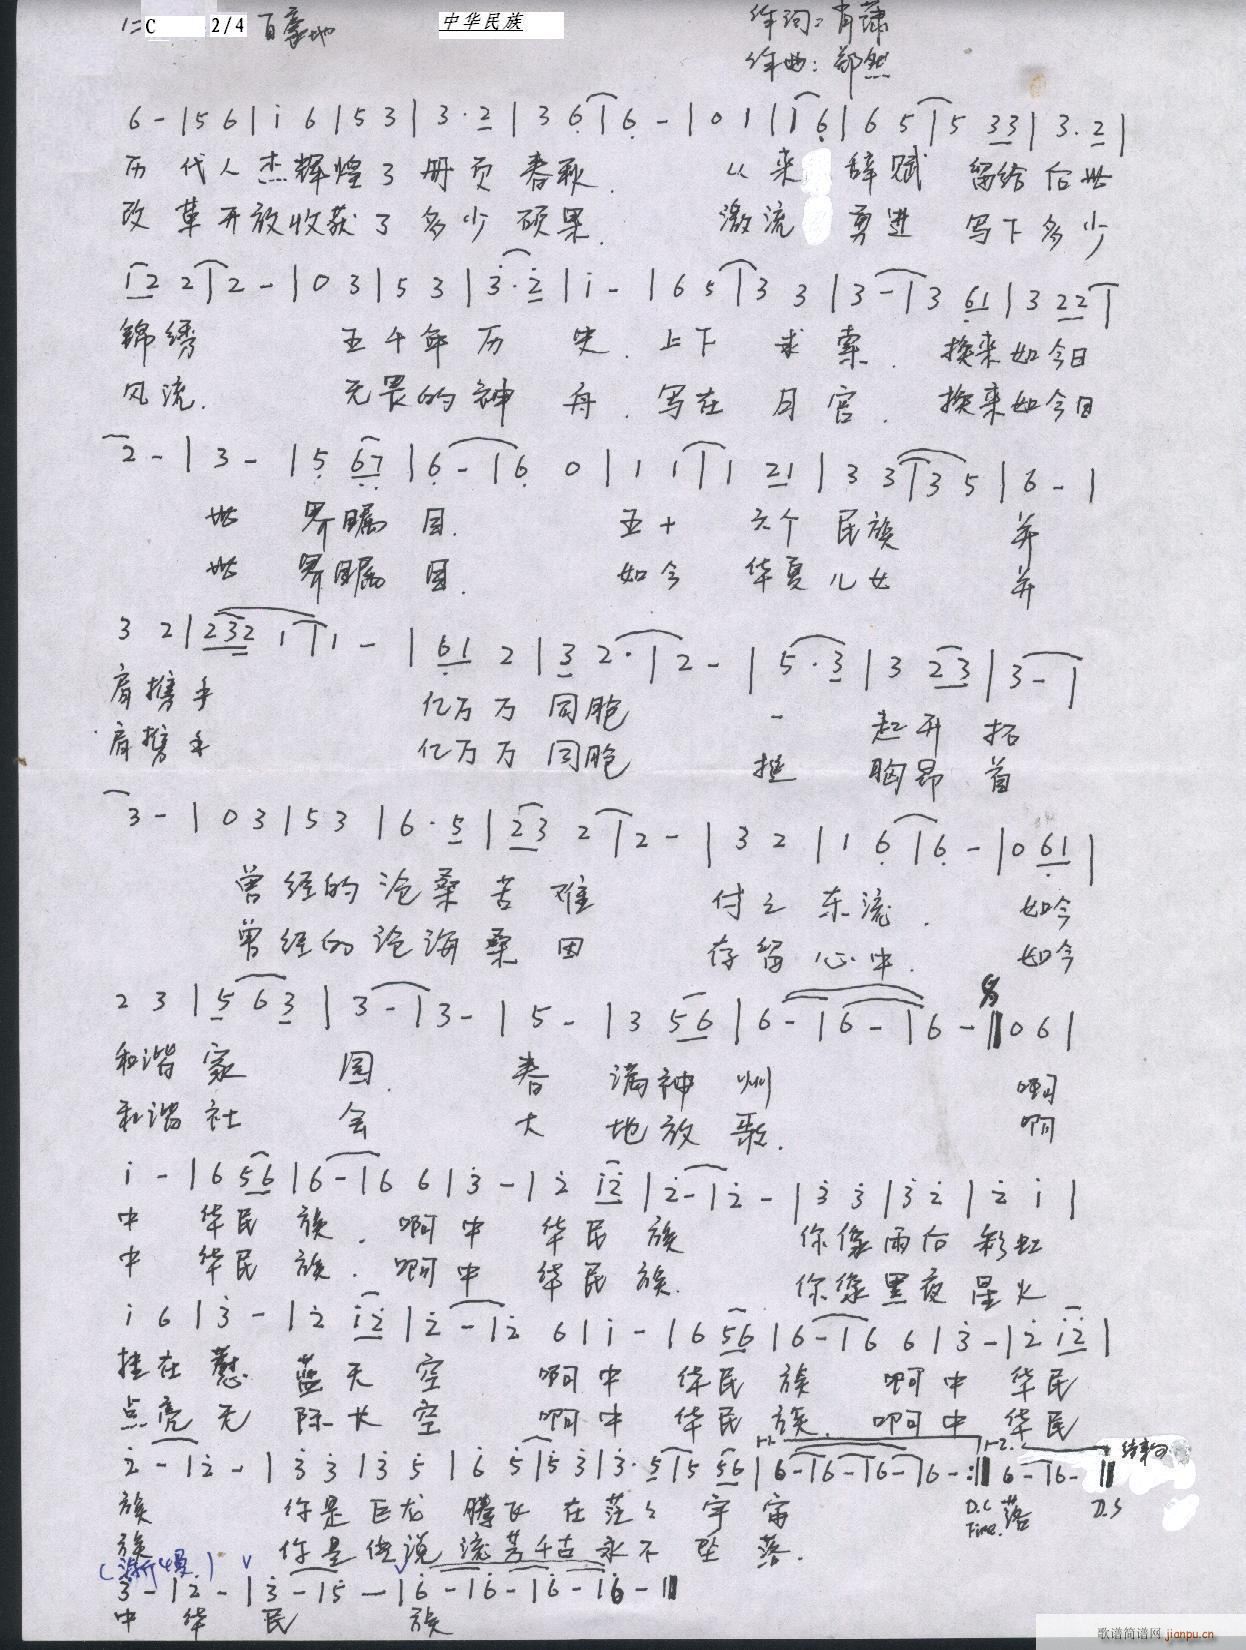 1=C 2/4 自豪地
中华民族
作词：肖萧
作曲：郑然
6 - | 5 6 | i 6 | 5 3 | 3 · 2 | 3 6 | 6 - | 0 1 | 1 6 | 6 5 | 5 3 3 | 3 . 2 |
历代人杰辉煌了册页春秋. 从来辞赋 留给后世
改革开放收获了多少硕果. 激流勇进 写下多少
1 2 2 | 2 - | 0 3 | 5 3 | 3 · 2 | i - | 6 5 | 3 3 | 3 - | 3 6 1 | 3 2 2 |
锦绣 五千年历史. 上下求索. 换来如今日
风流. 无畏的神舟. 写在月宫. 换来如今日
2 - | 3 - | 5 6 7 | 6 - | 6 0 | 1 1 | 1 2 1 | 3 3 | 3 5 | 6 - |
世界瞩目. 五十六个民族 并
世界瞩目. 如今华夏儿女 并
3 2 | 2 3 2 1 | 1 - | 6 1 2 | 3 2 · | 2 - | 5 · 3 | 3 2 3 | 3 - |
肩携手 亿万万同胞 一起开拓
肩携手 亿万万同胞 挺胸昂首
3 - | 0 3 | 5 3 | 6 · 5 | 2 3 2 | 2 - | 3 2 | 1 6 | 6 - | 0 6 1 |
曾经的沧桑苦难 付之东流. 如今
曾经的沧海桑田 存留心中. 如今
2 3 | 5 6 3 | 3 - | 3 - | 5 - | 3 5 6 | 6 - | 6 - | 6 - | 0 6 |
和谐家园. 春满神州 啊
和谐社会 大地放歌. 啊
i - | 6 5 6 | 6 - | 6 6 | 3 - | 2 i 2 | 2 - | 2 - | 3 3 | 3 2 | 2 i |
中华民族. 啊中华民族 你像雨后彩虹
中华民族. 啊中华民族. 你像黑夜星火
i 6 | 3 - | 2 i 2 | 2 - | 2 6 | i - | 6 5 6 | 6 - | 6 6 | 3 - | 2 i 2 |
挂在 蓝天空 啊中华民族 啊中华民
点亮无际长空 啊中华民族. 啊中华民
2 - | 2 - | 3 3 | 3 5 | 6 5 | 5 3 | 3 · 5 | 5 5 6 | 6 - | 6 - | 6 - | 6 - :|| 6 - | 6 - || 结束句
族 你是巨龙腾飞在茫茫宇宙 D.C Fine. 落 D.S
族 你是传说流芳千古永不坠落.
(渐慢)
3 - | 2 - | 3 - | 5 - | 6 - | 6 - | 6 - | 6 - ||
中华民族
歌谱简谱网 jianpu.cn